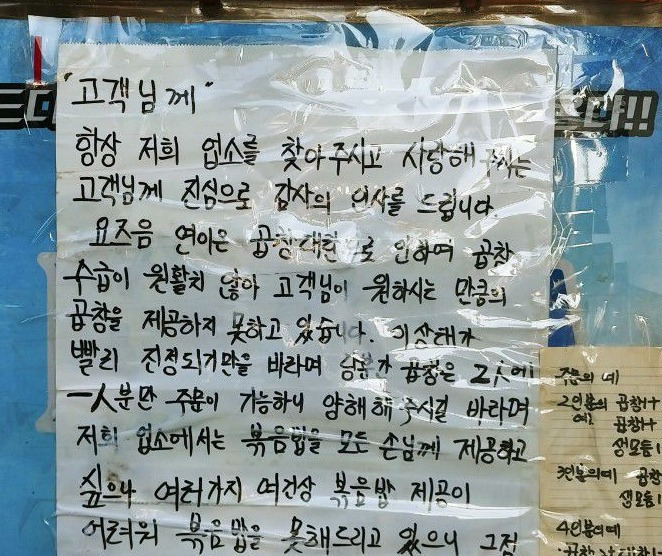 "고객님께"
항상 저희 업소를 찾아주시고 사랑해 주시는
고객님께 진심으로 감사의 인사를 드립니다.
요즈음 연이은 곱창대란으로 인하여 곱창
수급이 원활치 않아 고객님이 원하시는 만큼의
곱창을 제공하지 못하고 있습니다. 이상태가
빨리 진정되기만을 바라며 당분간 곱창은 2人에
一人분만 주문이 가능하니 양해해 주시길 바라며
저희 업소에서는 볶음밥을 모든 손님께 제공하고
싶으나 여러가지 여건상 볶음밥 제공이
어려워 볶음밥을 못해드리고 있으니 그점
주문의 예
2인분의 곱창1+
예는 곱창1+
생모듬1
3인분의예 곱창
생모듬1
4인분의예